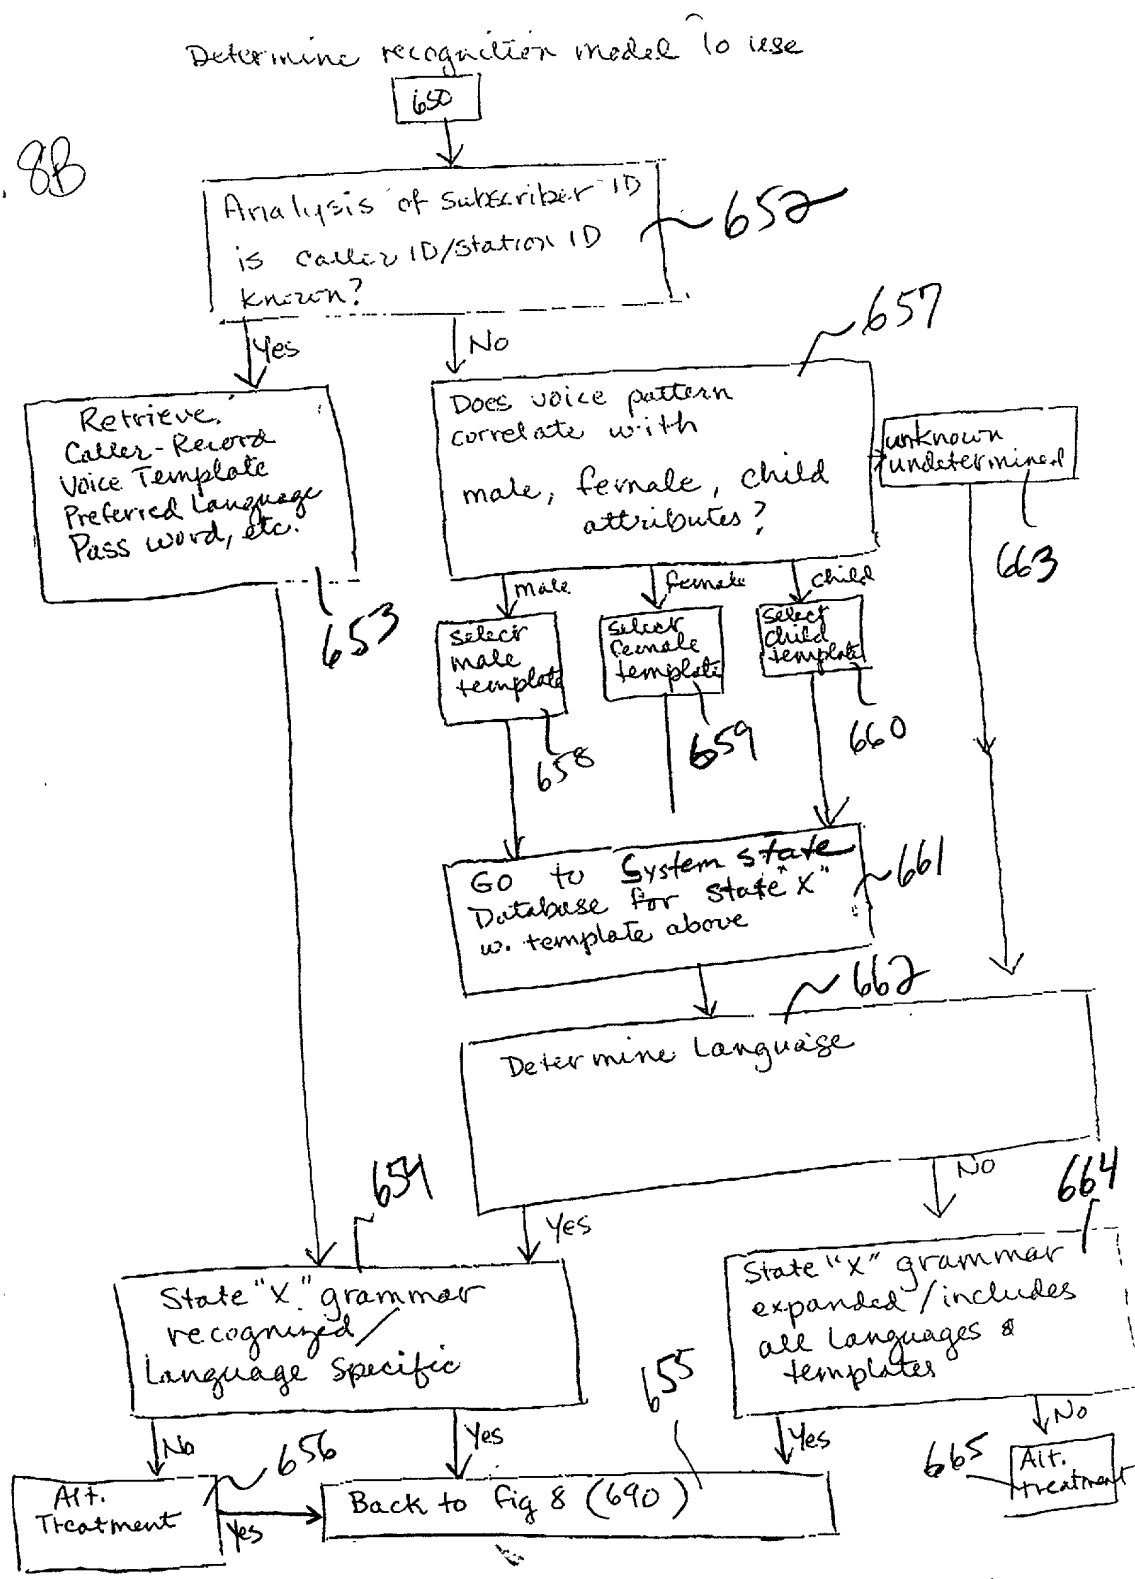 Determine recognition model to use
650
. 8B
Analysis of subscriber ID
is caller ID/station ID
known?
652
Yes
No
657
Retrieve.
Caller-Record
Voice Template
Preferred Language
Pass word, etc.
653
Does voice pattern
correlate with
male, female, child
attributes?
unknown
undetermined
663
male
female
child
select
male
template
658
select
female
template
659
select
child
template
660
Go to System state
Database for state "X"
w. template above
661
662
Determine Language
Yes
No
654
664
State "X" grammar
recognized/
Language Specific
State "X" grammar
expanded/includes
all languages &
templates
655
No
Yes
Yes
No
656
665
Alt.
Treatment
Yes
Back to fig 8 (690)
Alt.
treatment